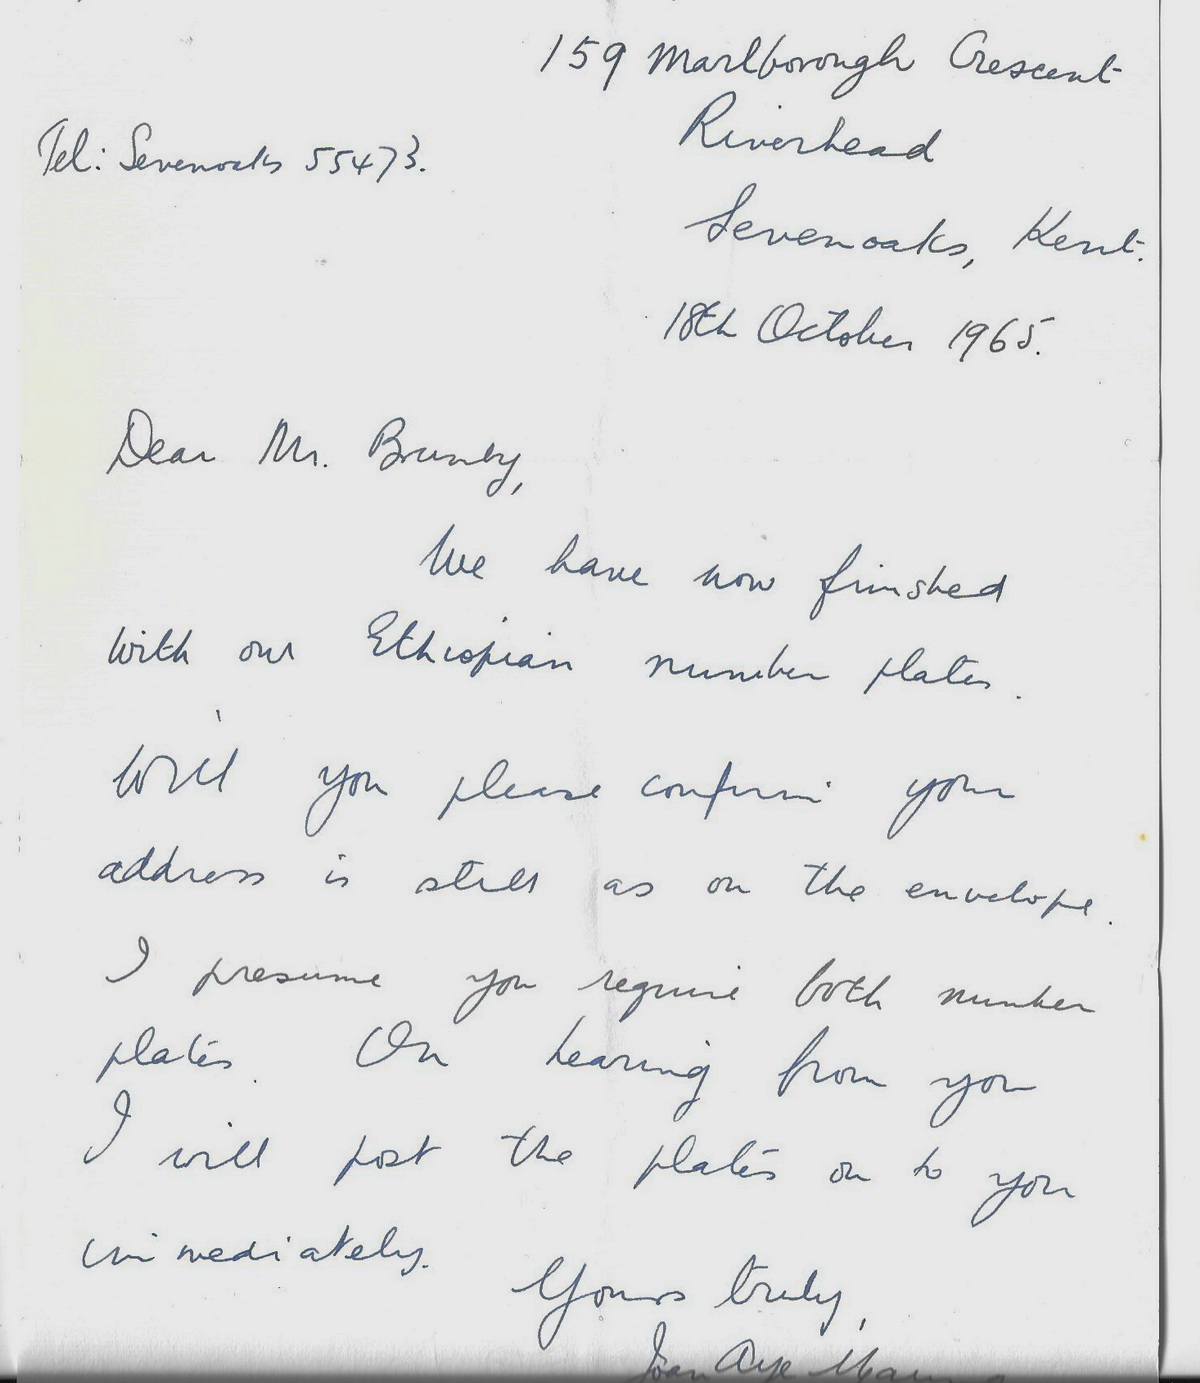 159 Marlborough Crescent
Riverhead
Tel: Sevenoaks 55473.
Sevenoaks, Kent.
18th October 1965.
Dear Mr. Brumby,
We have now finished
with our Ethiopian number plates.
Will you please confirm your
address is still as on the envelope.
I presume you require both number
plates. On hearing from you
I will post the plates on to you
immediately.
Yours truly,
Joan Aye